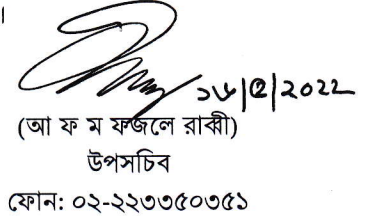 ১৬|৫|২০২২
(আ ফ ম ফজলে রাব্বী)
উপসচিব
ফোন: ০২-২২৩৩৫০৩৫১